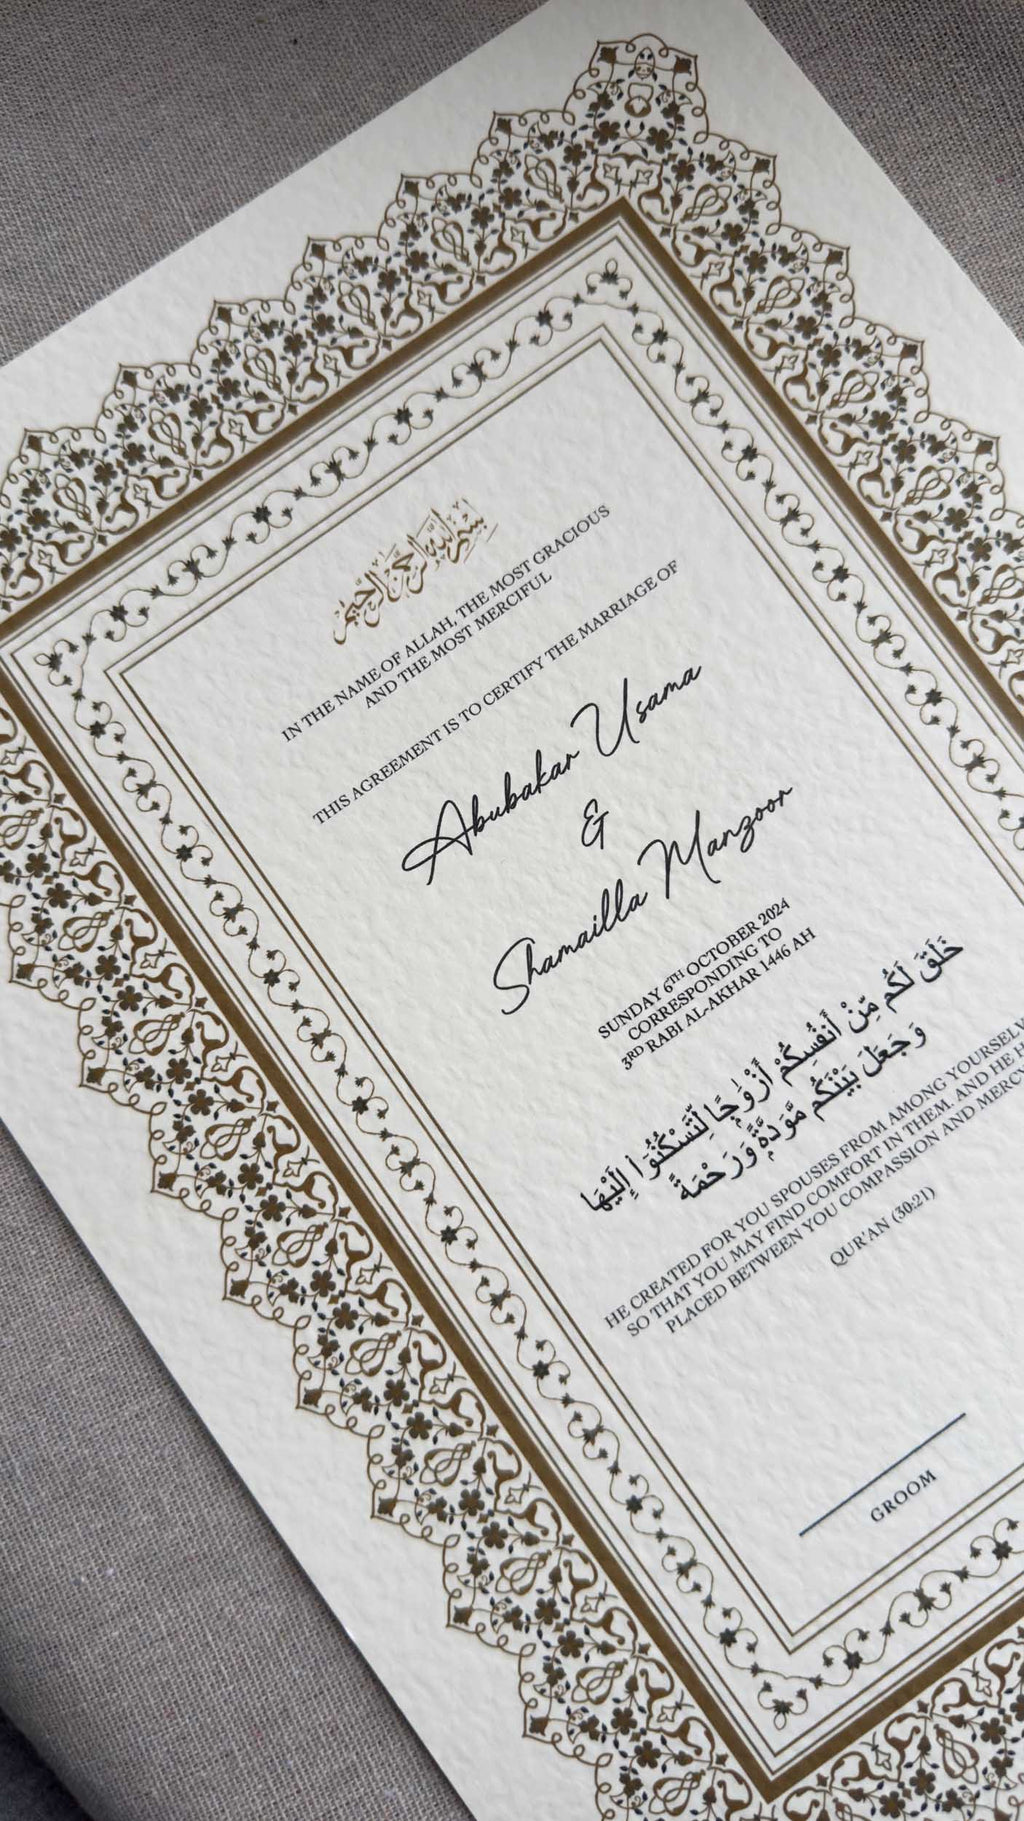 بِسْمِ اللَّهِ الرَّحْمَنِ الرَّحِيمِ
IN THE NAME OF ALLAH, THE MOST GRACIOUS
AND THE MOST MERCIFUL
THIS AGREEMENT IS TO CERTIFY THE MARRIAGE OF
Abubakar Usama
&
Shamailla Manzoor
SUNDAY 6TH OCTOBER 2024
CORRESPONDING TO
3RD RABI AL-AKHAR 1446 AH
خَلَقَ لَكُم مِّنْ أَنفُسِكُمْ أَزْوَٰجًا لِّتَسْكُنُوٓا۟ إِلَيْهَا
وَجَعَلَ بَيْنَكُم مَّوَدَّةً وَرَحْمَةً
HE CREATED FOR YOU SPOUSES FROM AMONG
SO THAT YOU MAY FIND COMFORT IN THEM. AND HE
PLACED BETWEEN YOU COMPASSION AND MERCY
QUR'AN (30:21)
GROOM